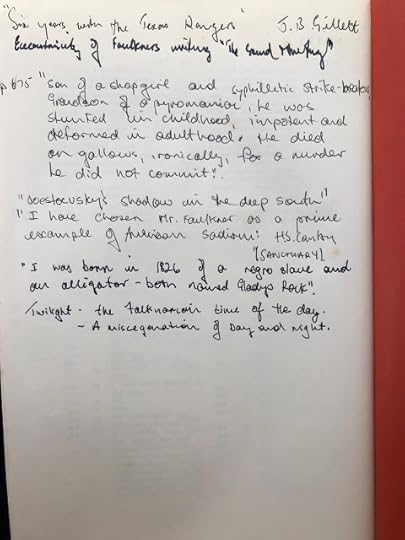 "Six years with the Texas Rangers" J.B Gillett
Eccentricity of Faulkners writing "The Sound & the Fury"
p 675 "son of a shopgirl and syphilletic strike-breaker,
Grandson of a pyromaniac, he was
stunted in childhood, impotent and
deformed in adulthood. He died
on gallows, ironically, for a murder
he did not commit".
"Dostoevsky's shadow in the deep south"
"I have chosen Mr. Faulkner as a prime
example of American Sadism: HS. Canby
[SANCTUARY]
"I was born in 1826 of a negro slave and
an alligator - both named Gladys Rock".
Twilight - the Faulknarain time of the day.
- A miscegenation of Day and night.